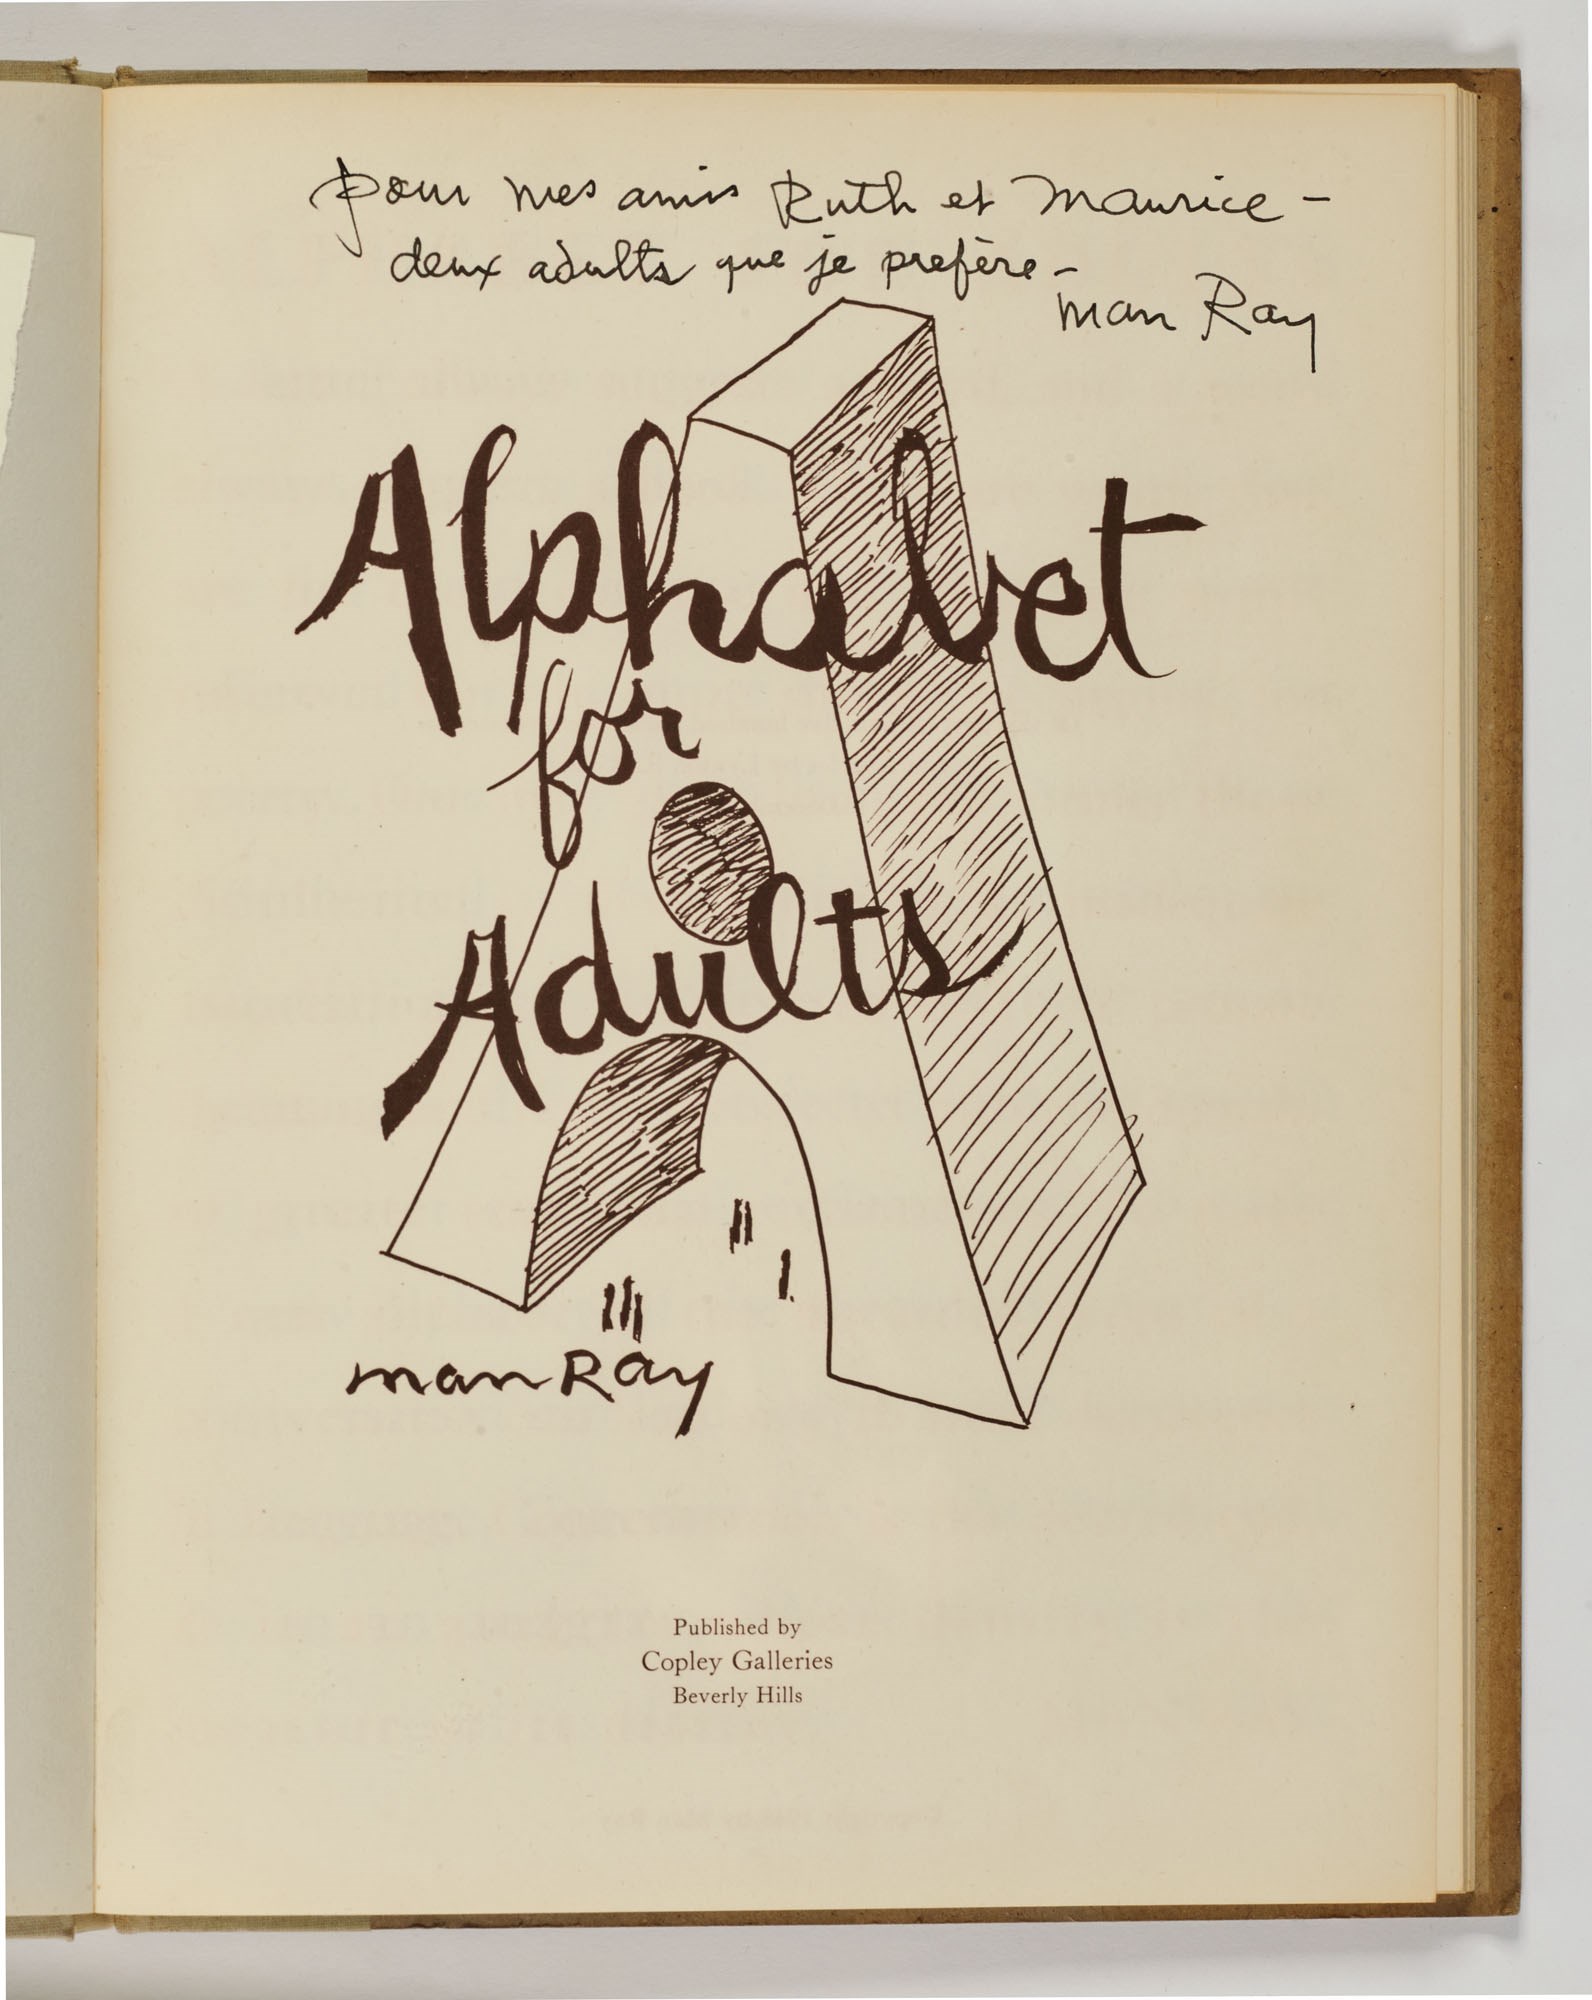 pour mes amis Ruth et Maurice –
deux adults que je prefère –
Man Ray
Alphabet
for
Adults
man Ray
Published by
Copley Galleries
Beverly Hills